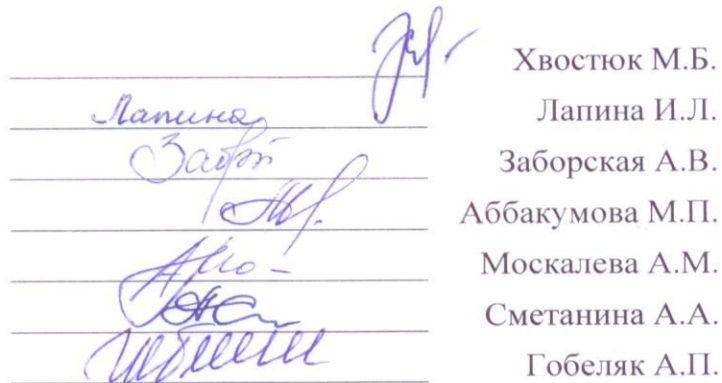 Хвостюк М.Б.
Лапина Лапина И.Л.
Заборская А.В.
Аббакумова М.П.
Москалева А.М.
Сметанина А.А.
Гобеляк А.П.